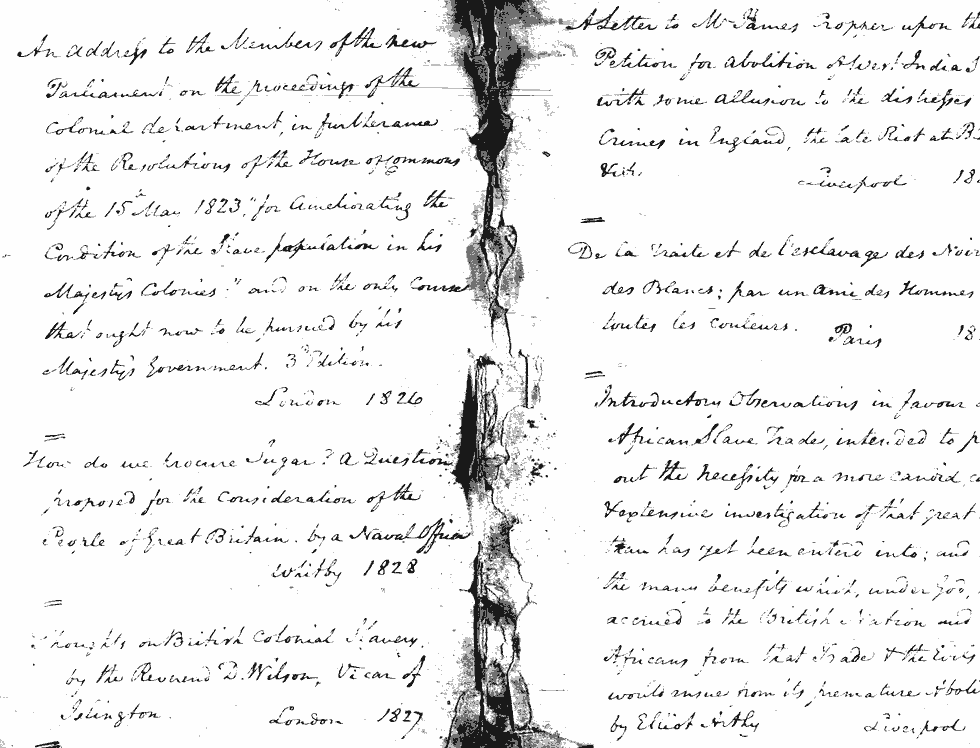 An address to the Members of the new
Parliament on the proceedings of the
Colonial department, in furtherance
of the Resolutions of the House of Commons
of the 15th May 1823, "for Ameliorating the
Condition of the Slave population in his
Majesty's Colonies:" and on the only Course
that ought now to be pursued by his
Majesty's Government. 3d Edition.
London 1826
How do we procure Sugar? A Question
proposed for the Consideration of the
People of Great Britain. by a Naval Officer
Whitby 1828
Thoughts on British Colonial Slavery.
by the Reverend D. Wilson, Vicar of
Islington. London 1827
A Letter to Mr James Cropper upon the
Petition for Abolition of West India
with some allusion to the distresses
Crimes in England, the late Riot at
&c &c. Liverpool
De la Traite et de l'esclavage des
des Blancs; par un Ami des Hommes
toutes les couleurs. Paris
Introductory Observations in favour
African Slave Trade, intended to
out the necessity for a more candid
& extensive investigation of that great
than has yet been enterd into; and
the many benefits which, under God,
accrued to the British Nation and
Africans from that Trade & the Evils
would insue from its premature
by Eliiot Arthy Liverpool